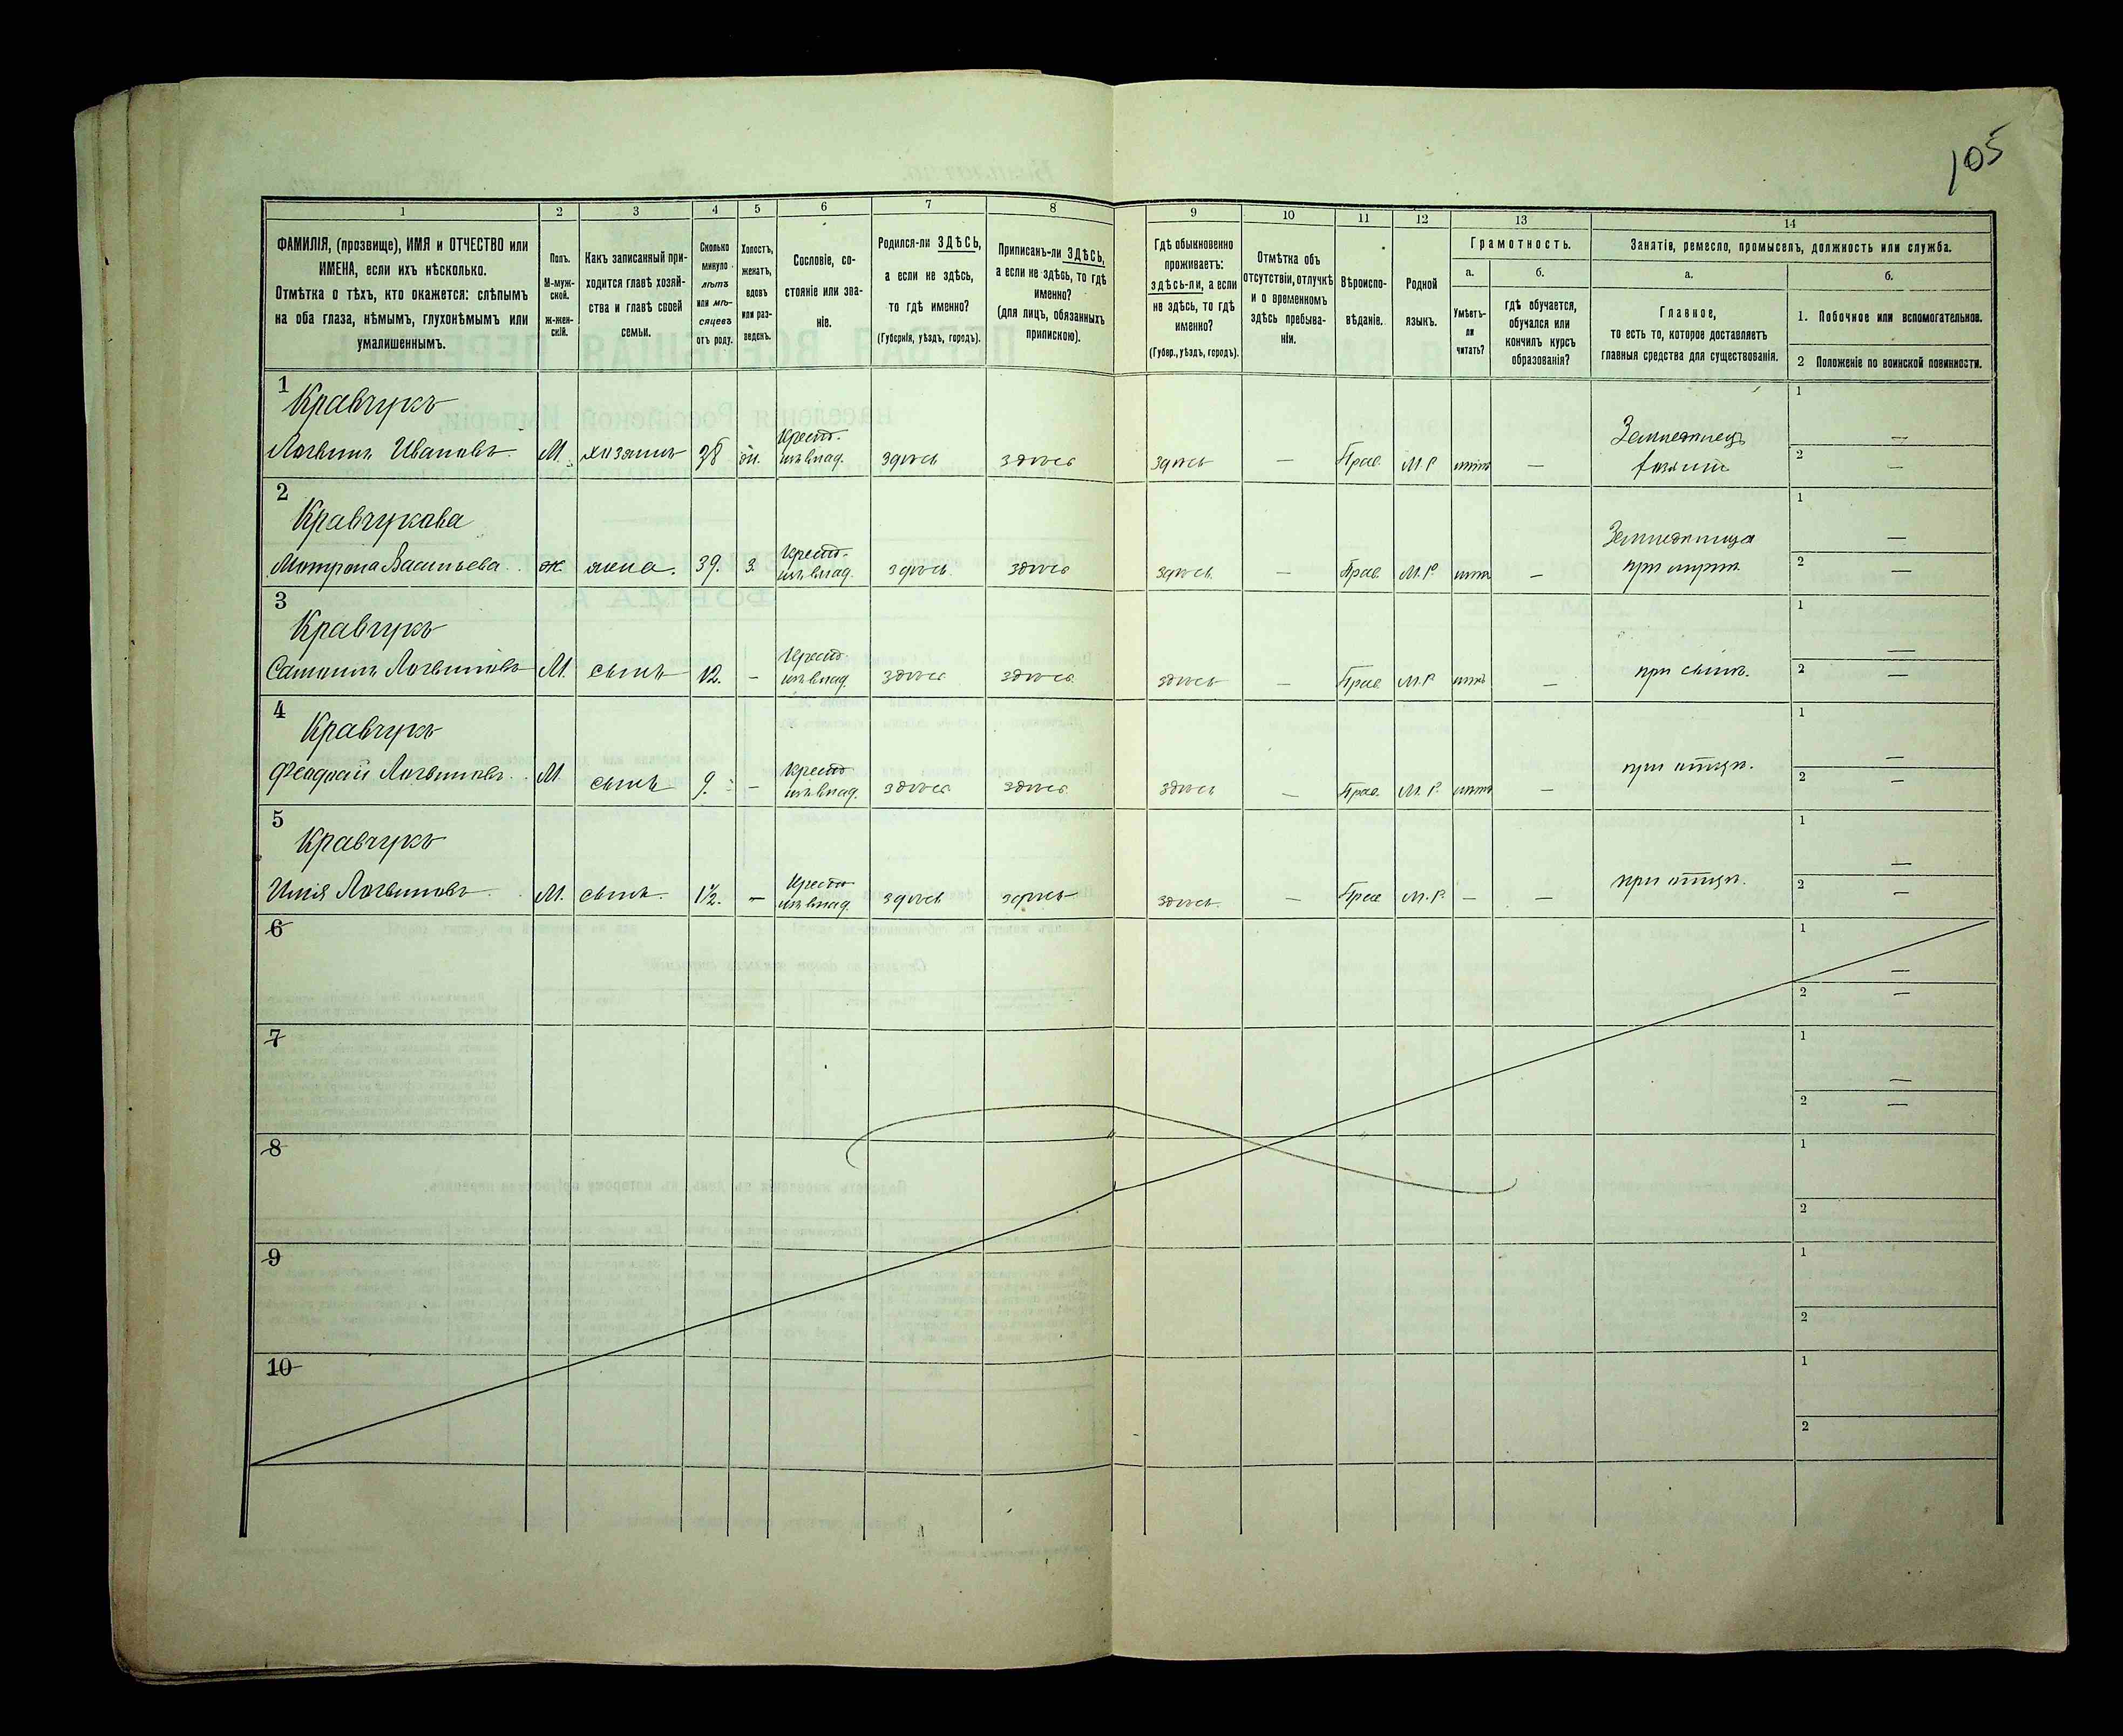 105
1 2 3 4 5 6 7 8 9 10 11 12 13 14
ФАМИЛІЯ, (прозвище), ИМЯ и ОТЧЕСТВО или
ИМЕНА, если ихъ нѣсколько.
Отмѣтка о тѣхъ, кто окажется: слѣпымъ
на оба глаза, нѣмымъ, глухонѣмымъ или
умалишеннымъ.
Полъ.
М-муж-
ской.
ж-жен-
скій.
Какъ записанный при-
ходится главѣ хозяй-
ства и главѣ своей
семьи.
Сколько
минуло
лѣтъ
или мѣ-
сяцевъ
отъ роду.
Холостъ,
женатъ,
вдовъ
или раз-
веденъ.
Сословіе, со-
стояніе или зва-
ніе.
Родился-ли ЗДѢСЬ,
а если не здѣсь,
то гдѣ именно?
(Губернія, уѣздъ, городъ).
Приписанъ-ли ЗДѢСЬ,
а если не здѣсь, то гдѣ
именно?
(для лицъ, обязанныхъ
припискою).
Гдѣ обыкновенно
проживаетъ:
здѣсь-ли, а если
не здѣсь, то гдѣ
именно?
(Губер., уѣздъ, городъ).
Отмѣтка объ
отсутствіи, отлучкѣ
и о временномъ
здѣсь пребыва-
ніи.
Вѣроиспо-
вѣданіе.
Родной
языкъ.
Грамотность.
а.
Умѣетъ-
ли
читать?
б.
гдѣ обучается,
обучался или
кончилъ курсъ
образованія?
Занятія, ремесло, промыселъ, должность или служба.
а.
Главное,
то есть то, которое доставляетъ
главныя средства для существованія.
б.
1. Побочное или вспомогательное.
2 Положеніе по воинской повинности.
1
Кравчукъ
Логвинъ Ивановъ М. хозяинъ 38 Крест. изъ влад. здѣсь здѣсь здѣсь — Прав. М.Р. нѣтъ — Земледѣлецъ
1 —
2 —
2
Кравчукова
Мотрона Васильева ж. жена. 39. З. Крест. изъ влад. здѣсь здѣсь здѣсь — Прав. М.Р. нѣтъ — Земледѣлица при мужѣ.
1 —
2 —
3
Кравчукъ
Логвиновъ М. сынъ 12. — Крест. изъ влад. здѣсь здѣсь здѣсь — Прав. М.Р. нѣтъ — при
1 —
2 —
4
Кравчукъ
Логвиновъ М сынъ 9. — Крест. изъ влад. здѣсь здѣсь здѣсь — Прав. М.Р. нѣтъ — при отцѣ.
1 —
2 —
5
Кравчукъ
Илія Логвиновъ М. сынъ. 1½. — Крест. изъ влад. здѣсь здѣсь здѣсь — Прав М.Р. — — при отцѣ.
1 —
2 —
6
1 —
2 —
7
1 —
2 —
8
1
2
9
1
2
10
1
2